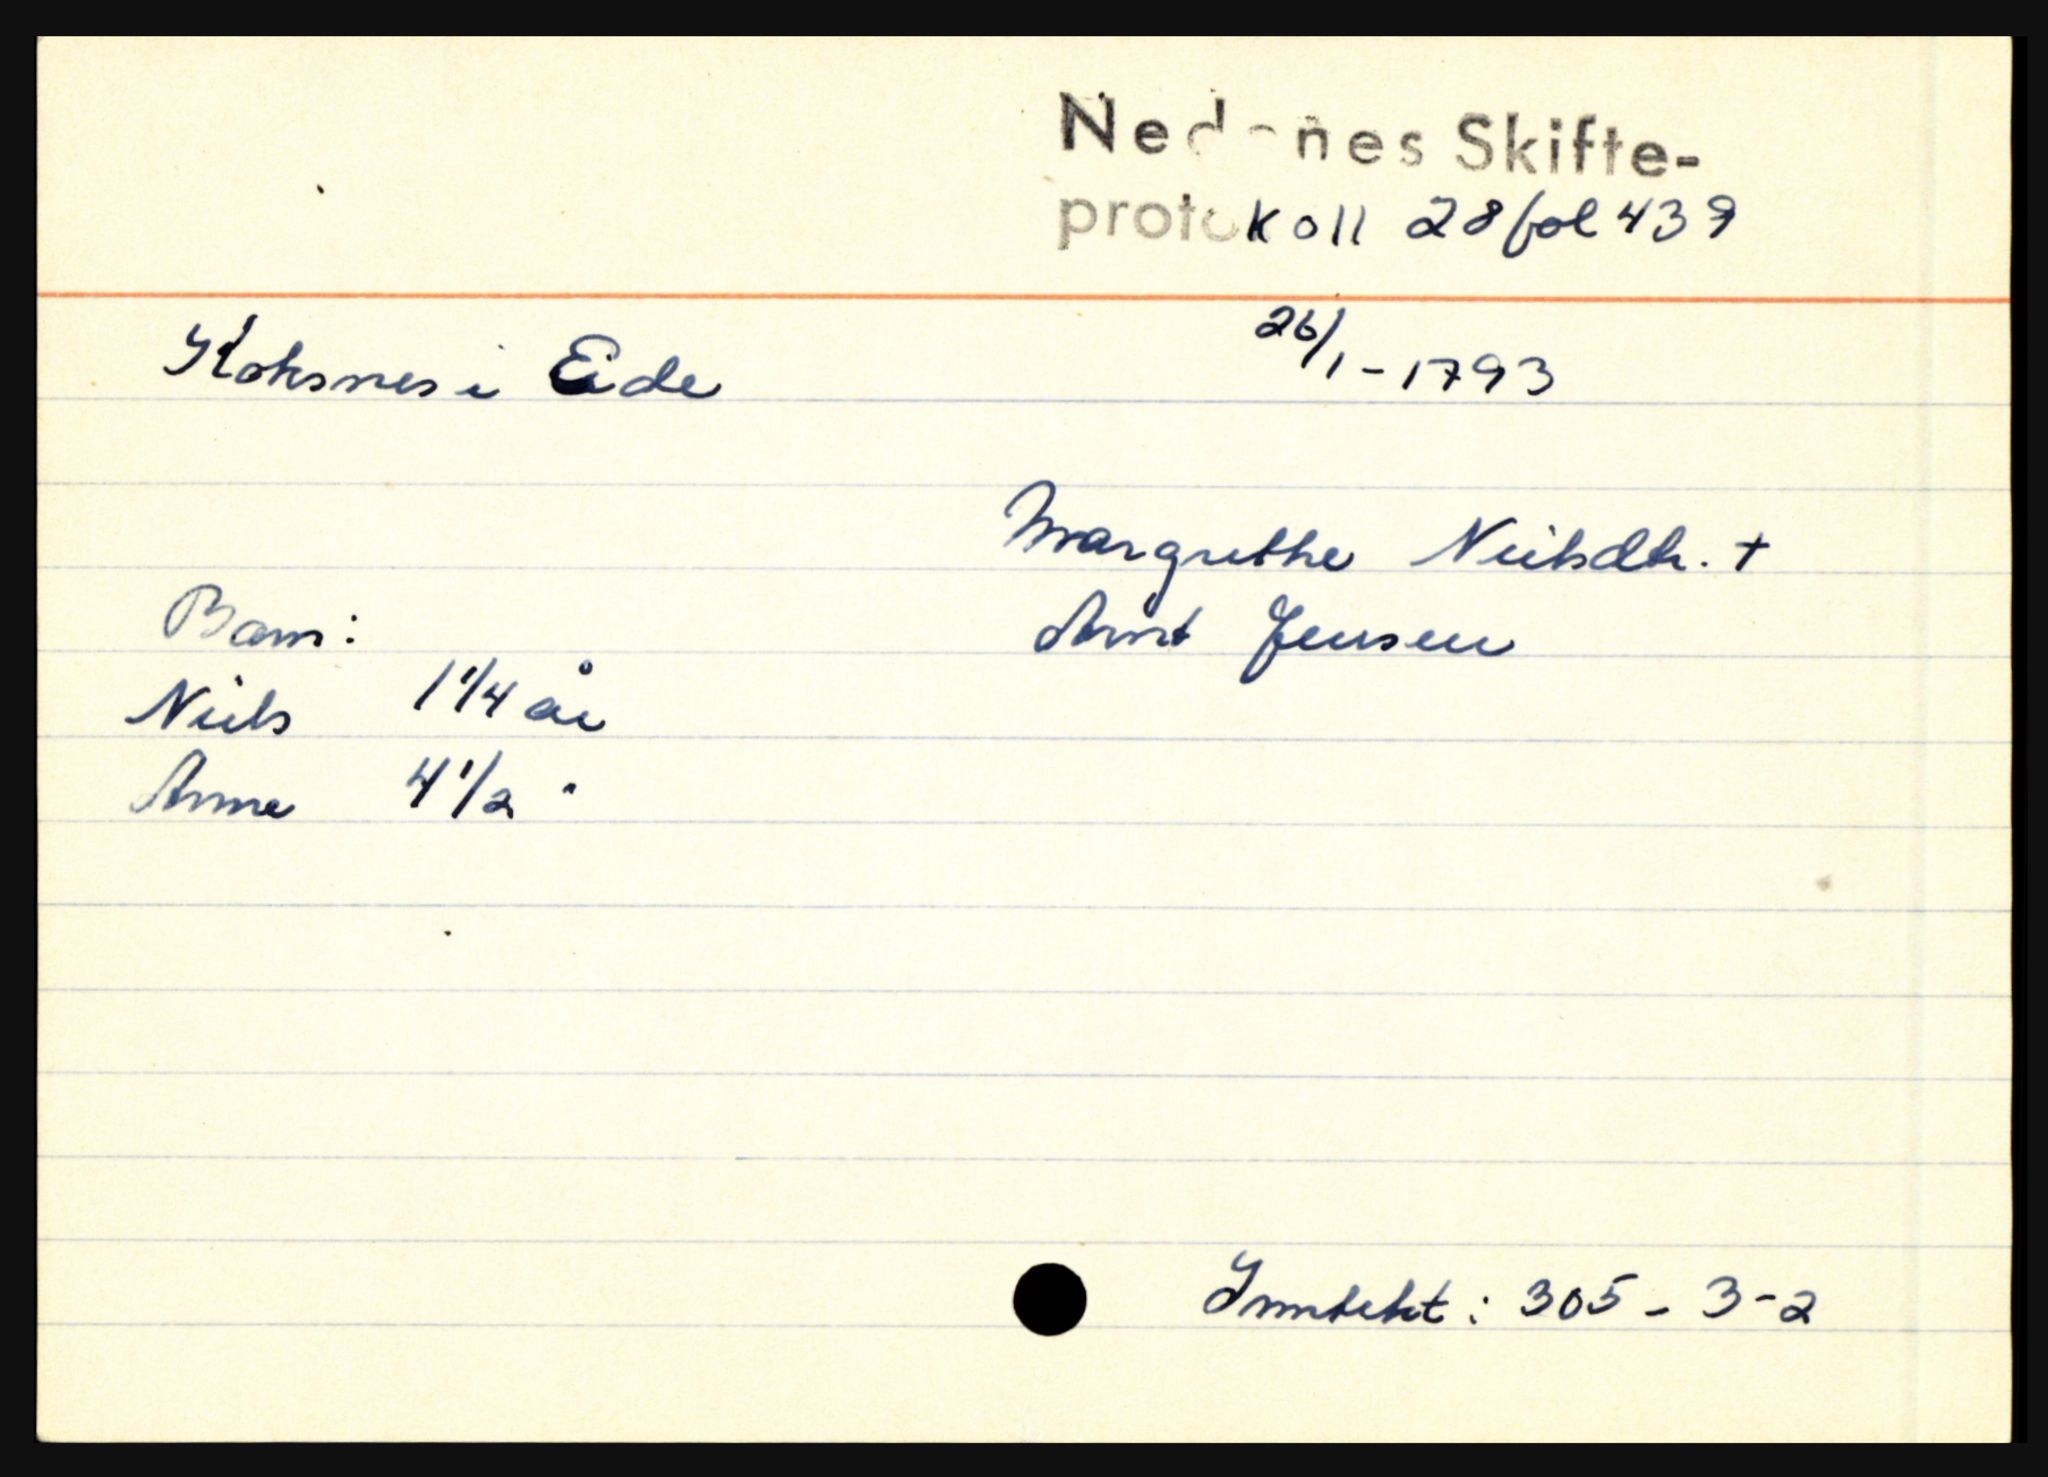 Nedenes Skifte-
protokoll 28 fol 439
Koksnes i Eide
26/1-1793
Margrethe Neilsdtr. +
Arnt Jensen
Barn:
Niels 1 1/4 år
Anne 4 1/2 "
Inntekt: 305-3-2